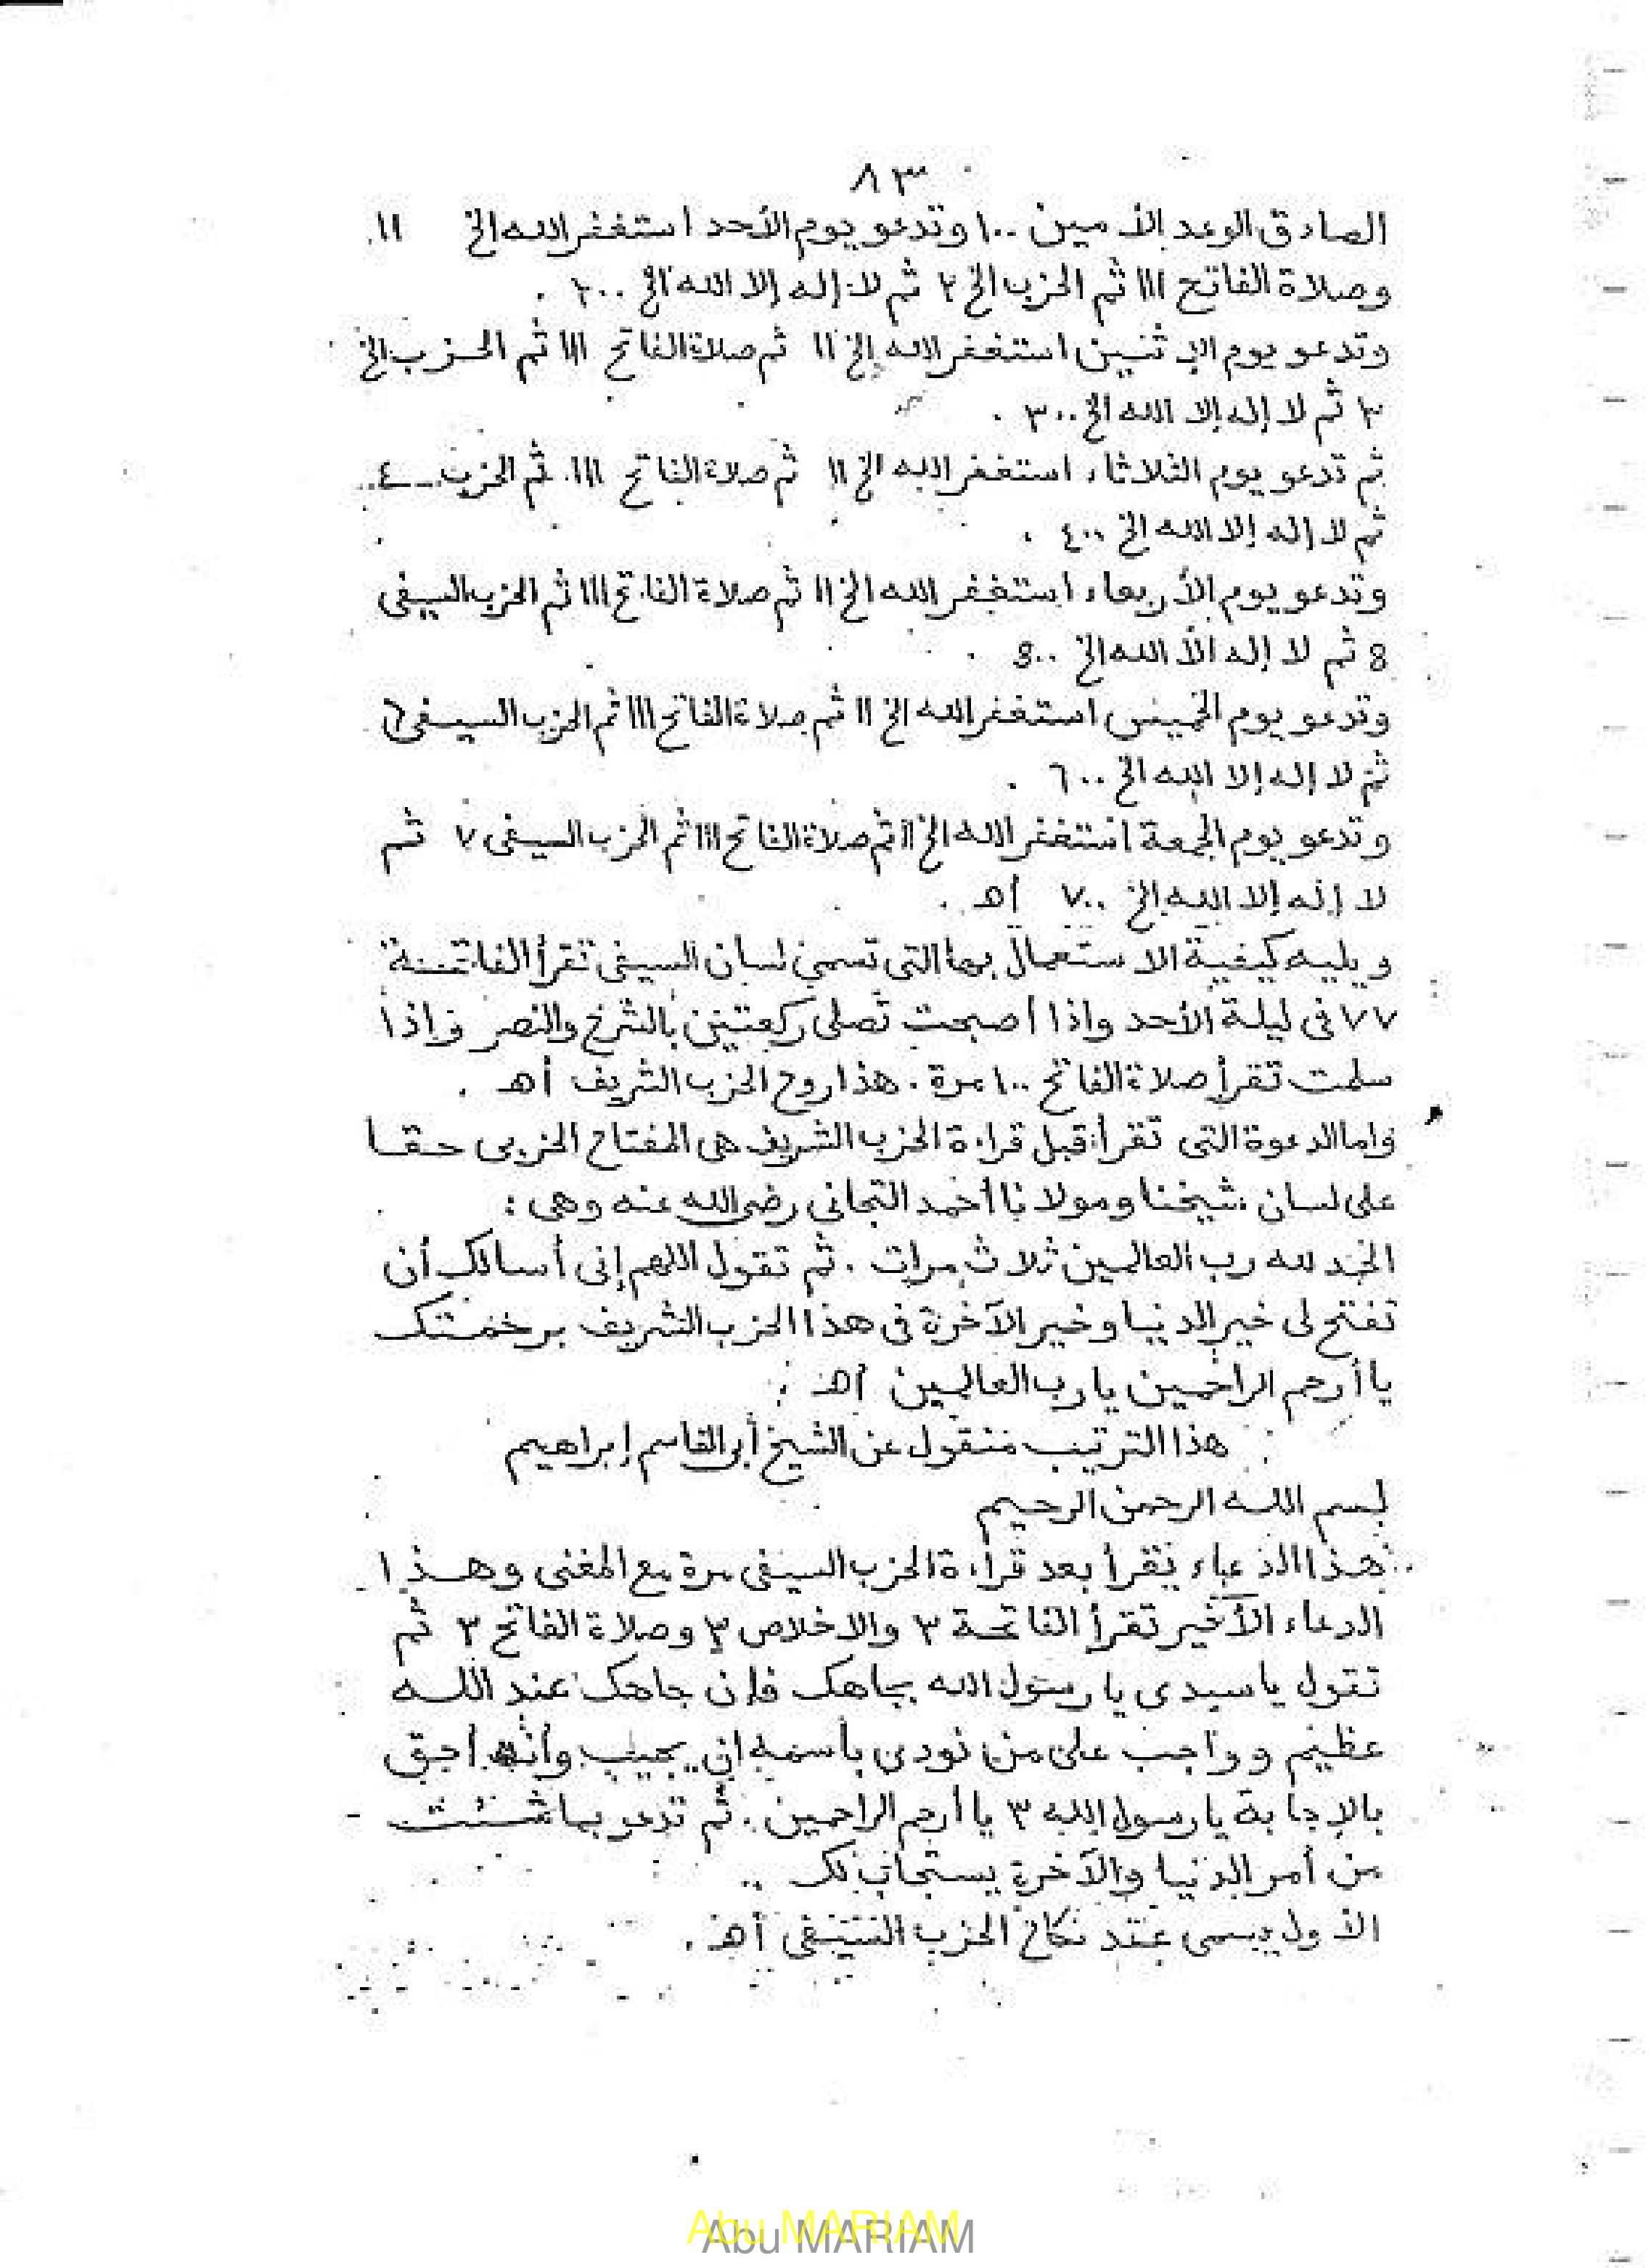 ٨٣
الصادق الوعد الأمين ١٠٠ وتدعو يوم الأحد استغفر الله الخ ١١
وصلاة الفاتح ١١١ ثم الحزب الخ ٢ ثم لا إله إلا الله الخ ٢٠٠ .
وتدعو يوم الإثنين استغفر الله إلخ ١١ ثم صلاة الفاتح ١١١ ثم الحزب الخ
٣ ثم لا إله إلا الله الخ ٣٠٠ .
ثم تدعو يوم الثلاثاء استغفر الله الخ ١١ ثم صلاة الفاتح ١١١ ثم الحزب ٤
ثم لا إله إلا الله الخ ٤٠٠ .
وتدعو يوم الأربعاء استغفر الله الخ ١١ ثم صلاة الفاتح ١١١ ثم الحزب السيفى
٥ ثم لا إله الا الله الخ ٥٠٠ .
وتدعو يوم الخميس استغفر الله الخ ١١ ثم صلاة الفاتح ١١١ ثم الحزب السيفى ٦
ثم لا إله إلا الله الخ ٦٠٠ .
وتدعو يوم الجمعة استغفر الله الخ ١١ ثم صلاة الفاتح ١١١ ثم الحزب السيفى ٧ ثم
لا إله إلا الله الخ ٧٠٠ أهـ .
ويليه كيفية الاستعمال بها التى تسمى لسان السيفى تقرأ الفاتحة
٧٧ فى ليلة الأحد واذا أصبحت تصلى ركعتين بالشرح والنصر واذا
سلمت تقرأ صلاة الفاتح ١٠٠ مرة . هذا روح الحزب الشريف أهـ .
واما الدعوة التى تقرأ قبل قراءة الحزب الشريف هى المفتاح الحزبى حقا
على لسان شيخنا ومولانا أحمد التجانى رضى الله عنه وهى :
الحمد لله رب العالمين ثلاث مرات . ثم تقول اللهم إنى أسالك أن
تفتح لى خير الدنيا وخير الآخرة فى هذا الحزب الشريف برحمتك
يا أرحم الراحمين يا رب العالمين أهـ .
هذا الترتيب منقول عن الشيخ أبى القاسم إبراهيم
بسم الله الرحمن الرحيم
هذا الدعاء يقرأ بعد قراءة الحزب السيفى مرة مع المغنى وهذا
الدعاء الأخير تقرأ الفاتحة ٣ والاخلاص ٣ وصلاة الفاتح ٣ ثم
تقول يا سيدى يا رسول الله بجاهك فإن جاهك عند الله
عظيم وواجب على من نودى بأسمه ان يجيب وأنت أحق
بالإجابة يا رسول الله ٣ يا أرحم الراحمين . ثم تدعو بما شئت
من أمر الدنيا والآخرة يستجاب لك ..
الأول يسمى عقد نكاح الحزب السيفى أهـ .
Abu MARIAM